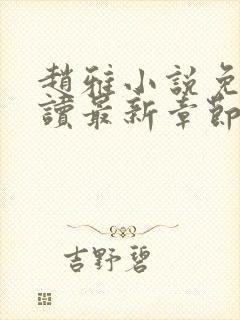 趙雅小說免
讀最新章節
吉野碧